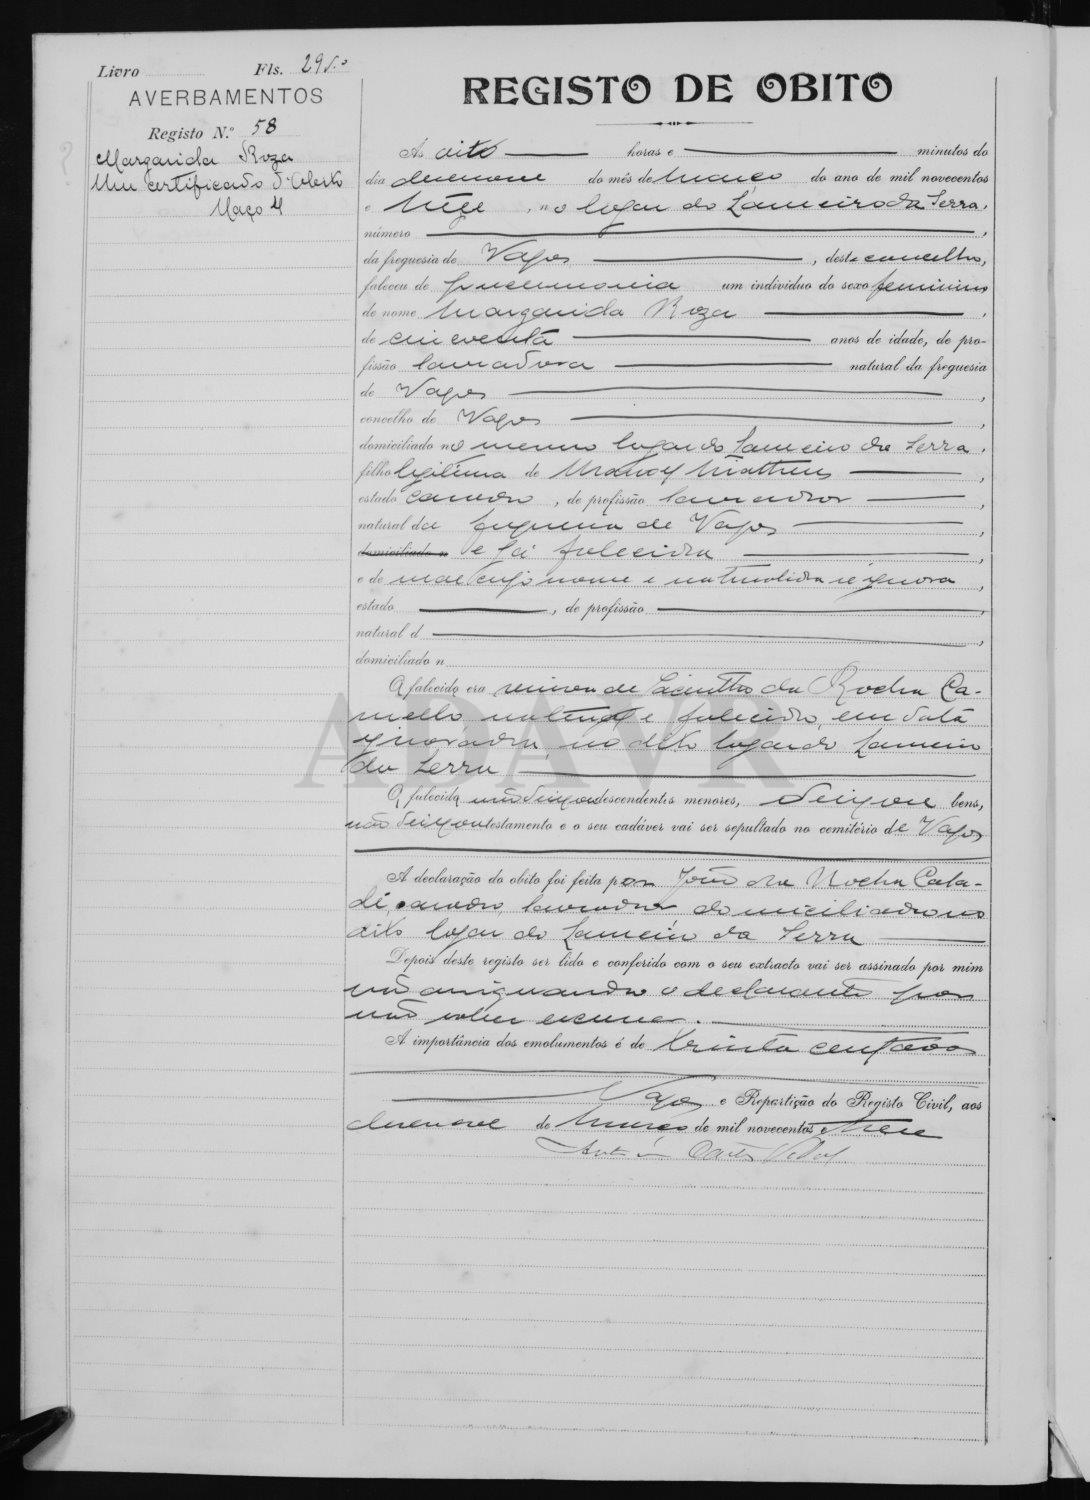 Livro Fls. 29v.o
AVERBAMENTOS
Registo N.o 58
Margarida Roza
Um certificado d'obito
Maço 4
REGISTO DE OBITO
Ás oito horas e minutos do
dia desenove do mês de Março do ano de mil novecentos
e treze, no logar do Lameiro da Serra,
número ,
da freguesia de Vagos , deste concelho,
faleceu de pneumonia um individuo do sexo feminino
de nome Margarida Roza ,
de cincoenta anos de idade, de pro-
fissão lavradora natural da freguesia
de Vagos ,
concelho de Vagos ,
domiciliado no mesmo logar do Lameiro da Serra,
filho legitima de Manoel Matheus ,
estado casado, de profissão lavrador ,
natural da freguesia de Vagos ,
domiciliado n e já falecido ,
e de mae cujo nome e naturalidade se ignora ,
estado , de profissão ,
natural d ,
domiciliado n
A falecida era viuva de Jacintho da Rocha Ca-
mello, natural e falecido, em data
ignorada, no dito logar do Lameiro
da Serra
A falecida não deixou descendentes menores, deixou bens,
não deixou testamento e o seu cadáver vai ser sepultado no cemitério de Vagos
A declaração do obito foi feita por João da Rocha Cala-
di, casado, lavrador domiciliado no
dito logar do Lameiro da Serra
Depois deste registo ser lido e conferido com o seu extracto vai ser assinado por mim
não assignando o declarante por
não saber escrever.
A importância dos emolumentos é de trinta centavos
Vagos e Repartição do Registo Civil, aos
desenove de Março de mil novecentos e treze
ADAVR